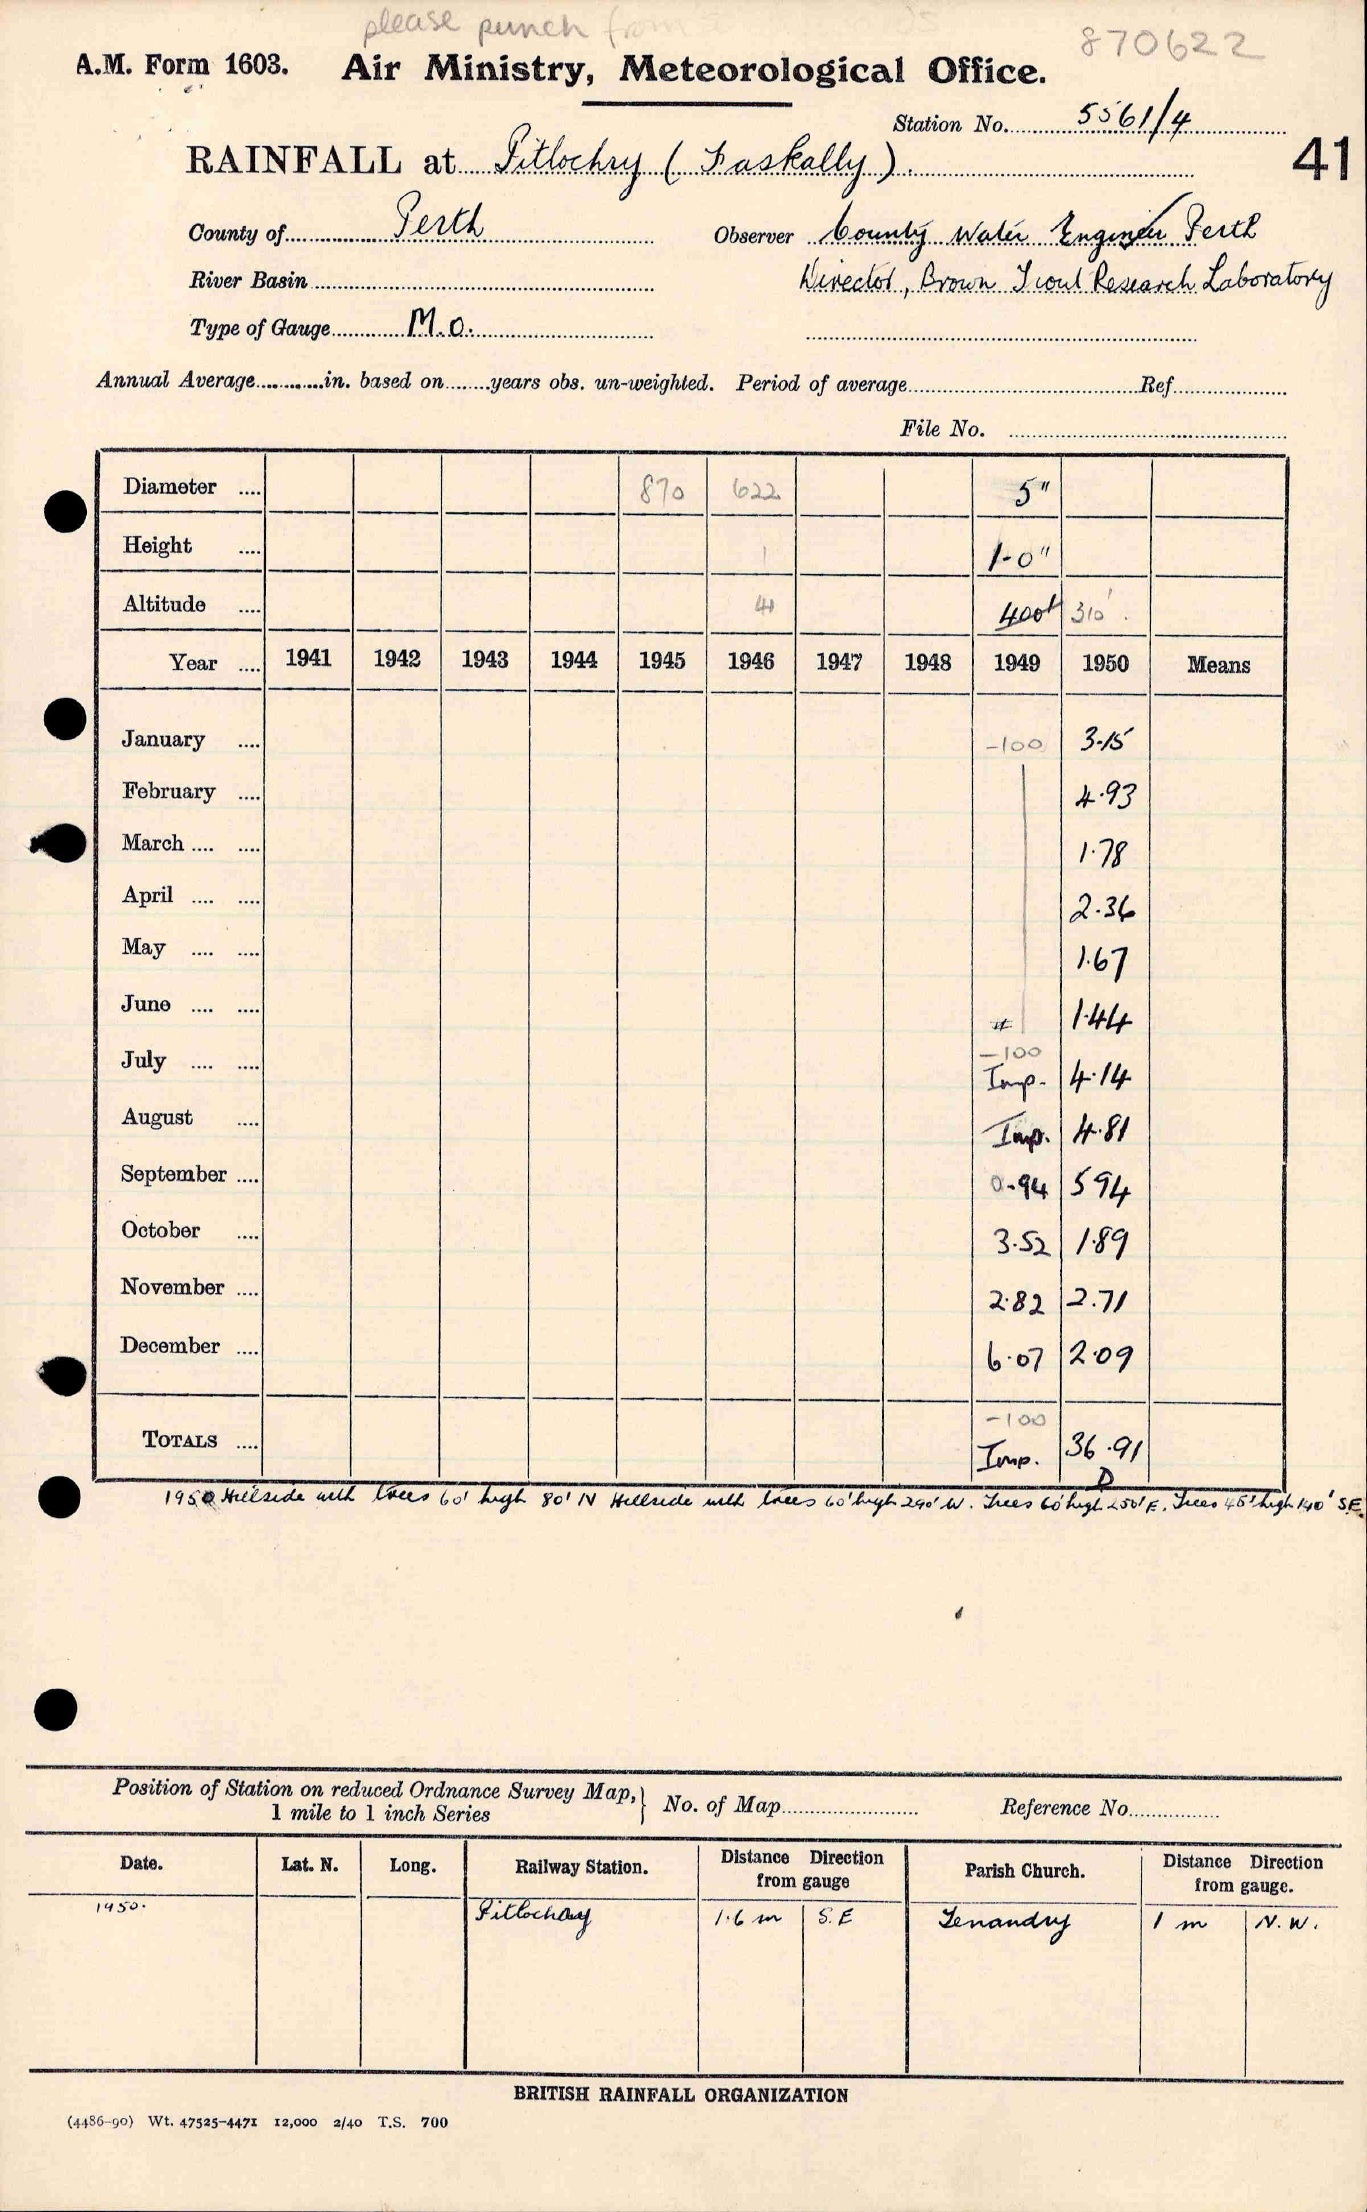 please punch from
870622
A.M. Form 1603. Air Ministry, Meteorological Office.
Station No. 5561/4
41
RAINFALL at Pitlochry ( Faskally ).
County of Perth Observer County Water Engineer Perth
River Basin Director, Brown Trout Research Laboratory
Type of Gauge M.O.
Annual Average in. based on years obs. un-weighted. Period of average Ref
File No.
Diameter .... 870 622 5"
Height .... 1 1-0"
Altitude .... 41 400' 310'.
Year .... 1941 1942 1943 1944 1945 1946 1947 1948 1949 1950 Means
January .... -100 3.15
February .... 4.93
March .... .... 1.78
April .... .... 2.36
May .... .... 1.67
June .... .... 1.44
-100
July .... .... Imp. 4.14
August .... Imp. 4.81
September .... 0.94 5 94
October .... 3.52 1.89
November .... 2.82 2.71
December .... 6.07 2.09
-100
TOTALS .... Imp. 36.91
D
1950 Hillside with trees 60' high 80' N Hillside with trees 60' high 290' W. Trees 60' high 250' E. Trees 45' high 140' S.E.
Position of Station on reduced Ordnance Survey Map, 1 mile to 1 inch Series } No. of Map Reference No.
Date. Lat. N. Long. Railway Station. Distance Direction from gauge Parish Church. Distance Direction from gauge.
1950. Pitlochry 1.6 m S.E Tenandry 1 m N.W.
BRITISH RAINFALL ORGANIZATION
(4486-90) Wt. 47525-4471 12,000 2/40 T.S. 700